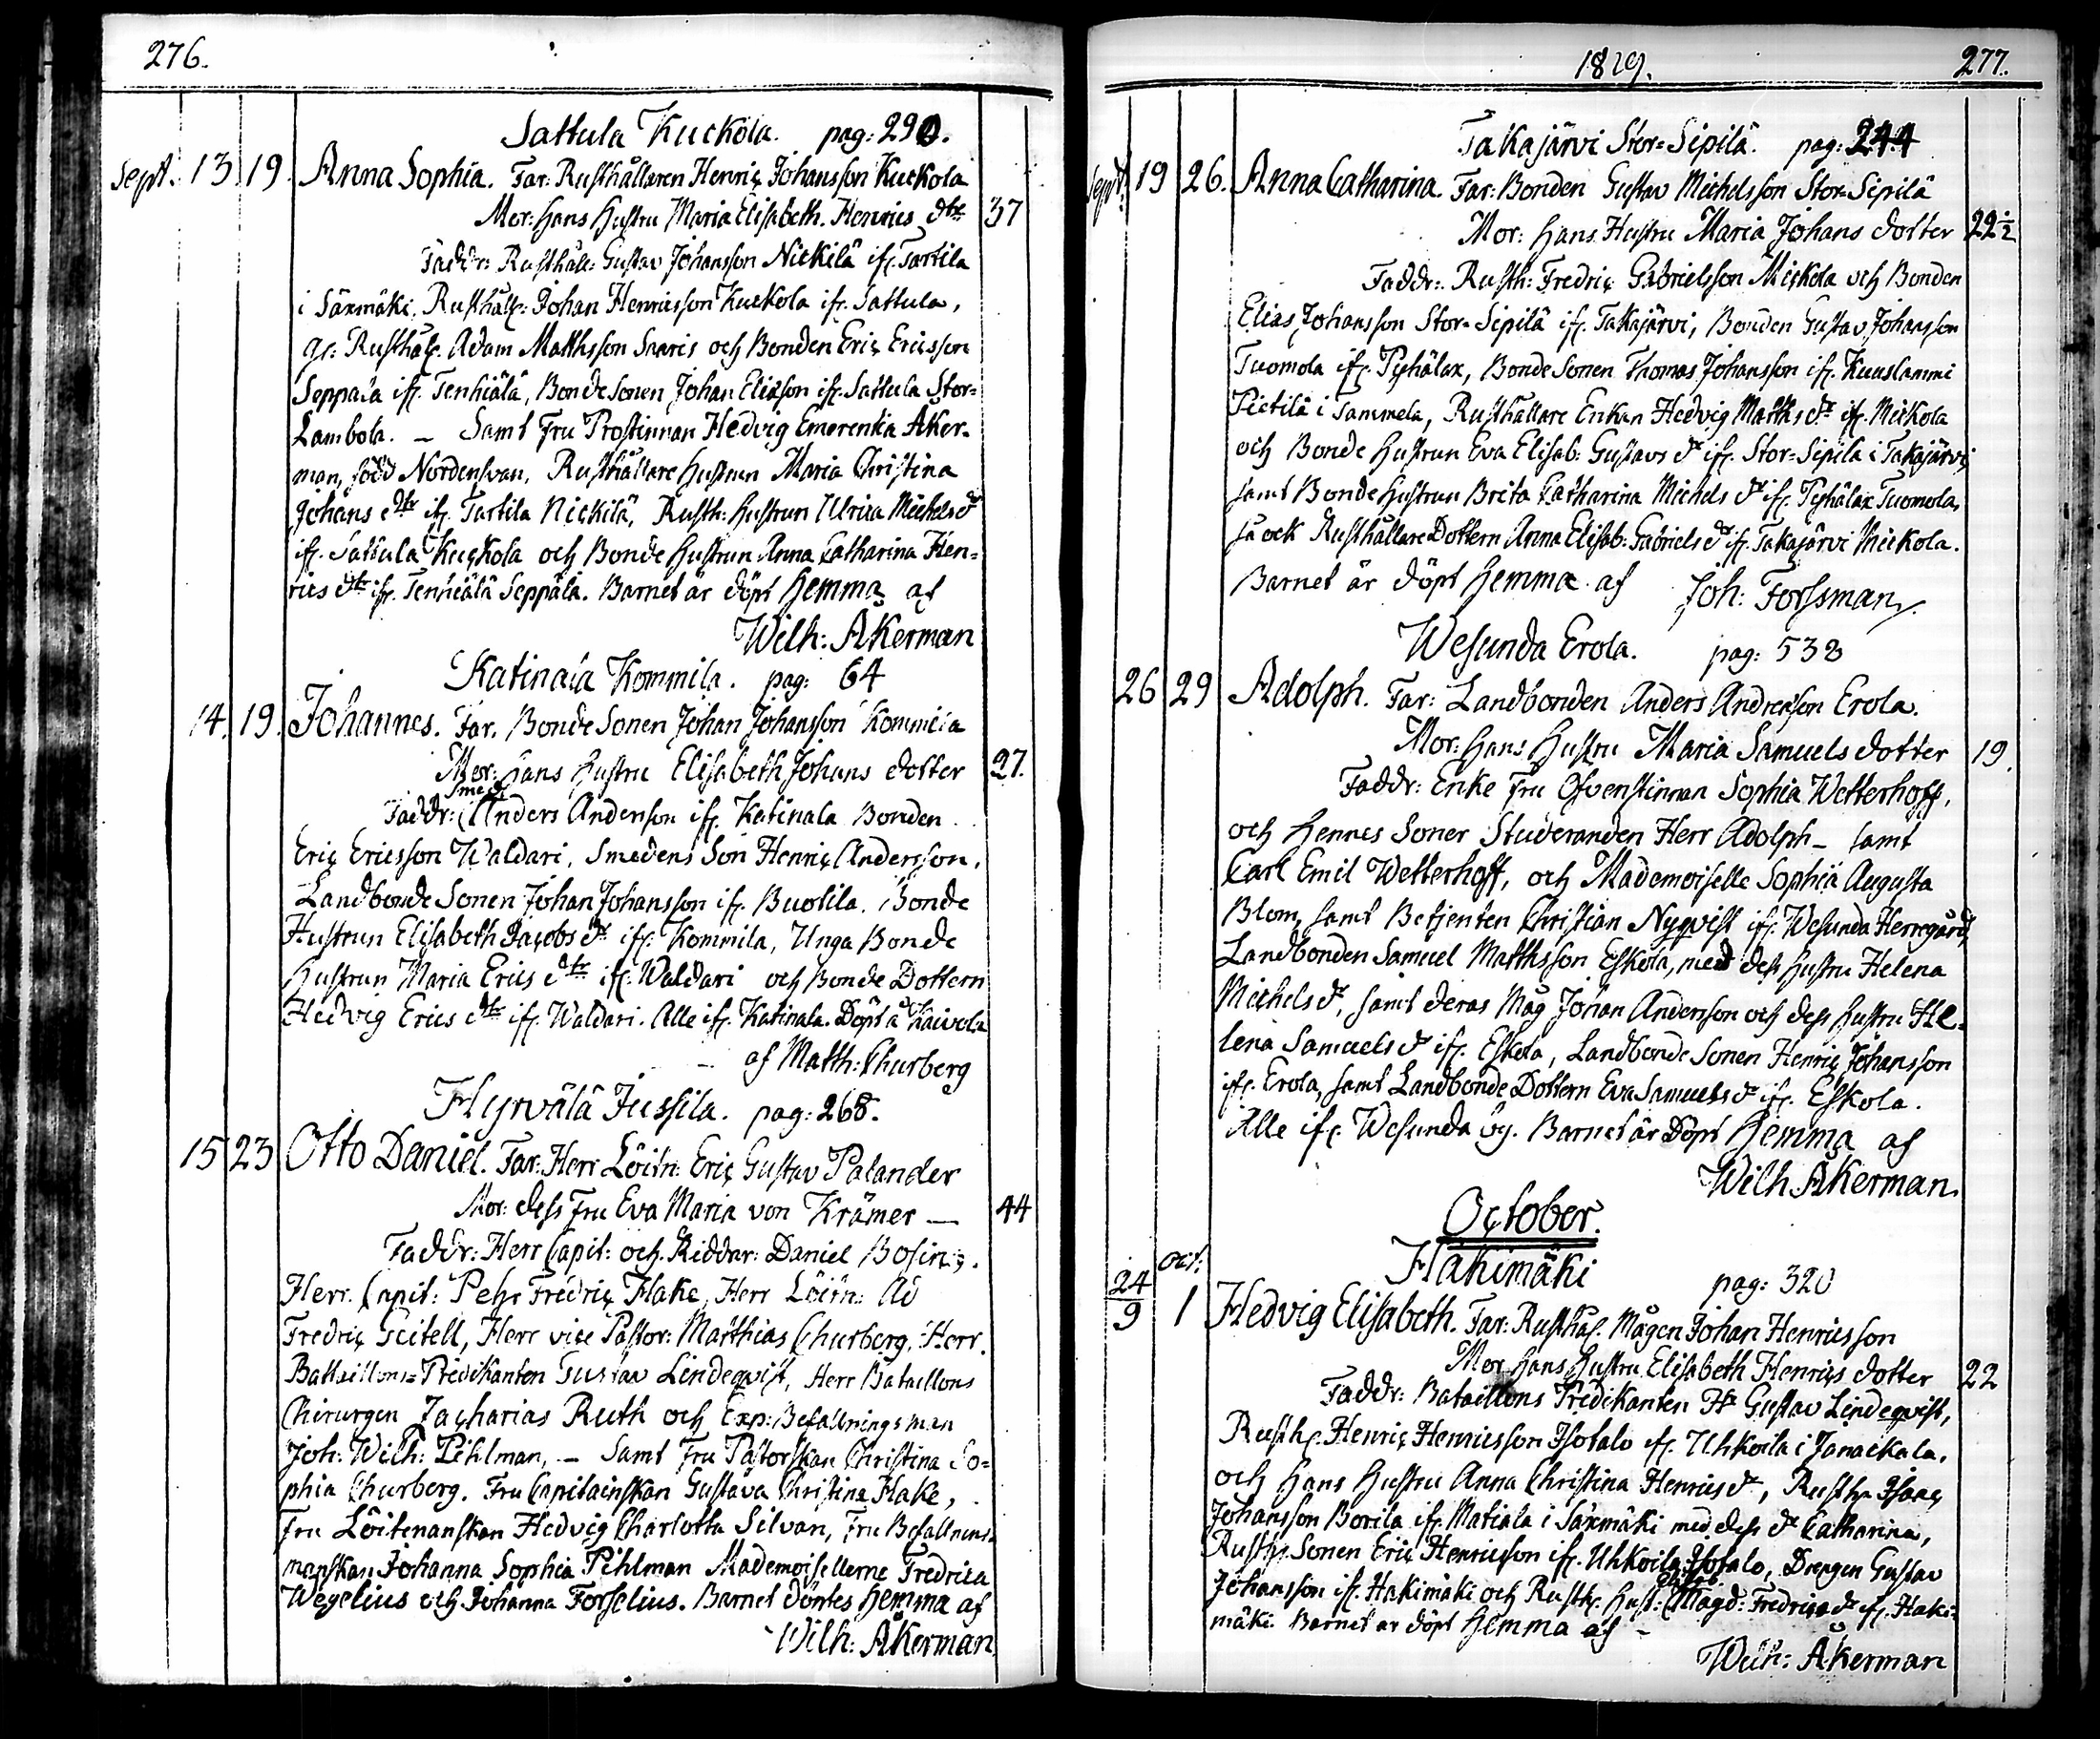 276.
Sattula Kuckola. pag: 290.
Sept. 13 19. Anna Sophia. Far: Rusthållaren Henric Johansson Kuckola
Mor: Hans Hustru Maria Elisabeth Henrics dtr 37
Faddr: Rusthåll: Gustav Johansson Nickilä ifr. Tartila
i Säxmäki, Rusthåll: Johan Henricsson Kuckola ifr. Sattula,
gl: Rusthåll. Adam Matthsson Saaris och Bonden Eric Ericsson
Seppälä ifr. Tenhiälä, Bonde Sonen Johan Eliasson ifr. Sattula Stor=
Lambola. – Samt Fru Prostinnan Hedvig Emerentia Åker=
man, född Nordensvan, Rusthållare Hustrun Maria Christina
Johans dtr ifr. Tartila Nickilä, Rusth: Hustrun Ulrica Michels dr
ifr. Sattula Kuckola och Bonde Hustrun Anna Catharina Hen=
rics dtr ifr. Tenhiälä Seppälä. Barnet är döpt Hemma af
Wilh: Åkerman
Katinala Kommila. pag: 64
14. 19. Johannes. Far. Bonde Sonen Johan Johansson Kommila
Mor: Hans Hustru Elisabeth Johans dotter 27.
Smed
Faddr: Anders Anderson ifr. Katinala Bonden
Eric Ericsson Waldari, Smedens Son Henric Andersson,
Landbonde Sonen Johan Johansson ifr. Buotila. Bonde
Hustrun Elisabeth Jacobs dr ifr: Kommila, Unga Bonde
Hustrun Maria Erics dtr ifr: Waldari och Bonde Dottern
Hedvig Erics dtr ifr. Waldari. Alle ifr. Katinala. Döpt å Kaivola
– af Matth: Churberg
Hyrvälä Jussila. pag: 268.
15 23 Otto Daniel. Far: Herr Löitn: Eric Gustav Palander
Mor: dess Fru Eva Maria von Krämer — 44
Faddr: Herr Capit: och Riddar: Daniel Bosin,
Herr Capit: Pehr Fredric Hake, Herr Löitn: Ad
Fredric Teitell, Herr vice Pastor: Matthias Churberg, Herr
Bataillons=Predikanten Gustav Lindeqvist, Herr Bataillons
Chirurgen Zacharias Ruth och Exp: Befallningsman
Joh: Wilh: Pihlman, – Samt Fru Pastorskan Christina So=
phia Churberg. Fru Capitainskan Gustava Christina Hake,
Fru Löitenanskan Hedvig Charlotta Silvan, Fru Befallnings=
manskan Johanna Sophia Pihlman Mademoisellerne Fredrica
Wegelius och Johanna Forselius. Barnet döptes Hemma af
Wilh: Åkerman
1829. 277.
Takajärvi Stor=Sipilä. pag: 244
Sept. 19 26. Anna Catharina. Far: Bonden Gustav Michelsson Stor=Sipilä
Mor: Hans Hustru Maria Johans dotter 22½
Faddr: Rusth: Fredric Gabrielsson Mickola och Bonden
Elias Johansson Stor=Sipilä ifr. Takajärvi, Bonden Gustav Johansson
Tuomola ifr. Pyhälax, Bonde Sonen Thomas Johansson ifr. Kuuslammi
Pietilä i Tammela, Rusthållare Enkan Hedvig Matths dr ifr. Mickola
och Bonde Hustrun Eva Elisab: Gustavs dr ifr. Stor=Sipilä i Takajärvi
samt Bonde Hustrun Brita Catharina Michels dr ifr. Pyhälax Tuomola,
så ock Rusthållare Dottern Anna Elisab: Gabriels dr ifr. Takajärvi Mickola.
Barnet är döpt Hemma af Joh: Forssman.
Wesunda Erola. pag: 538
26 29 Adolph. Far: Landbonden Anders Anderson Erola.
Mor: Hans Hustru Maria Samuels dotter 19.
Faddr: Enke Fru Öfverstinnan Sophia Wetterhoff,
och Hennes Söner Studeranden Herr Adolph – samt
Carl Emil Wetterhoff, och Mademoiselle Sophia Augusta
Blom, samt Betjenten Christian Nyqvist ifr. Wesunda Herregård,
Landbonden Samuel Matthsson Eskola, med dess Hustru Helena
Michels dr, samt deras Måg Johan Anderson och dess Hustru He=
lena Samuels dr ifr. Eskola, Landbonde Sonen Henric Johansson
ifr. Erola, samt Landbonde Dottern Eva Samuels dr ifr. Eskola.
Alle ifr. Wesunda by. Barnet är Döpt Hemma af
Wilh Åkerman.
October.
Hakimäki pag: 320
Oct:
24/9 1 Hedvig Elisabeth. Far: Rusthål. Mågen Johan Henricsson
Mor Hans Hustru Elisabeth Henrics dotter 22
Faddr: Bataillons Predikanten Hr Gustav Lindeqvist,
Rusth. Henric Henricsson Isotalo ifr. Uhkoila i Janackala.
och Hans Hustru Anna Christina Henrics dr, Rusth. Isaac
Johansson Borila ifr. Matiala i Säxmäki med dess dr Catharina,
Rusth. Sonen Eric Henricsson ifr. Uhkoila Isotalo, Drengen Gustav
Johansson ifr. Hakimäki och Rusth. Hust: Magd: Fredrics dr ifr. Haki=
mäki. Barnet är döpt Hemma af –
Wilh: Åkerman